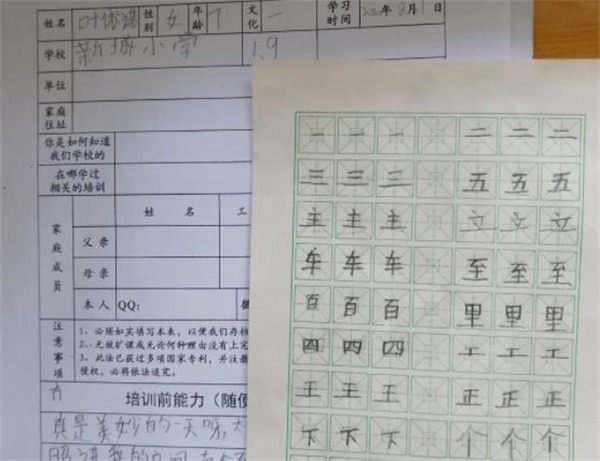 姓名 叶 性别 女 年龄 7 文化 一 学习时间 2020年8月1日
学校 新城小学 1.9
单位
家庭住址
你是如何知道我们学校的
在哪学过相关的培训
家庭成员 姓 名 工
父亲
母亲
本人 QQ:
注意事项
1、必须如实填写本表，以便我们存档
2、无故旷课或无论何种理由没有上完
3、此法已获过多项国家专利，并注册
侵权，必将依法追究。
培训前能力（随便
真是美妙的一天呀,
一 一 一 二 二 二
三 三 三 五 五 五
主 主 主 立 立 立
车 车 车 至 至 至
百 百 百 里 里 里
四 四 四 工 工 工
王 王 王 正 正 正
下 下 下 个 个 个